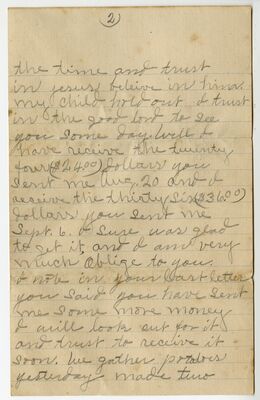 (2)
the time and trust
in jesus beleive in him.
my child hold out I trust
in the good lord to see
you some day. Well I
have receive the twenty
four ($24.00) dollars you
sent me Aug. 20 and I
receive the thirty six ($36.00)
dollars you sent me
Sept. 6. I sure was glad
to get it and I am very
much oblige to you.
I note in your last letter
you said you have sent
me some more money
I will look out for it
and trust to receive it
soon. We gather potatoes
yesterday made two